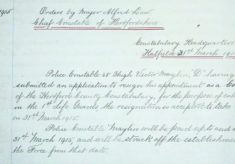 1915
Orders by Major Alfred Law
Chief Constable of Hertfordshire
Constabulary Headquarters
Hatfield 31st March 1915
Police Constable 58 Hugh Victor Mayles, D having
submitted an application to resign his appointment as a Con
of the Hertfordshire Constabulary, for the purpose of
in the 1st Life Guards, the resignation is accepted to take
on 31st March 1915.
Police Constable Mayles will be paid up to and
31st March 1915 and will be struck off the establishment
the Force from that date.